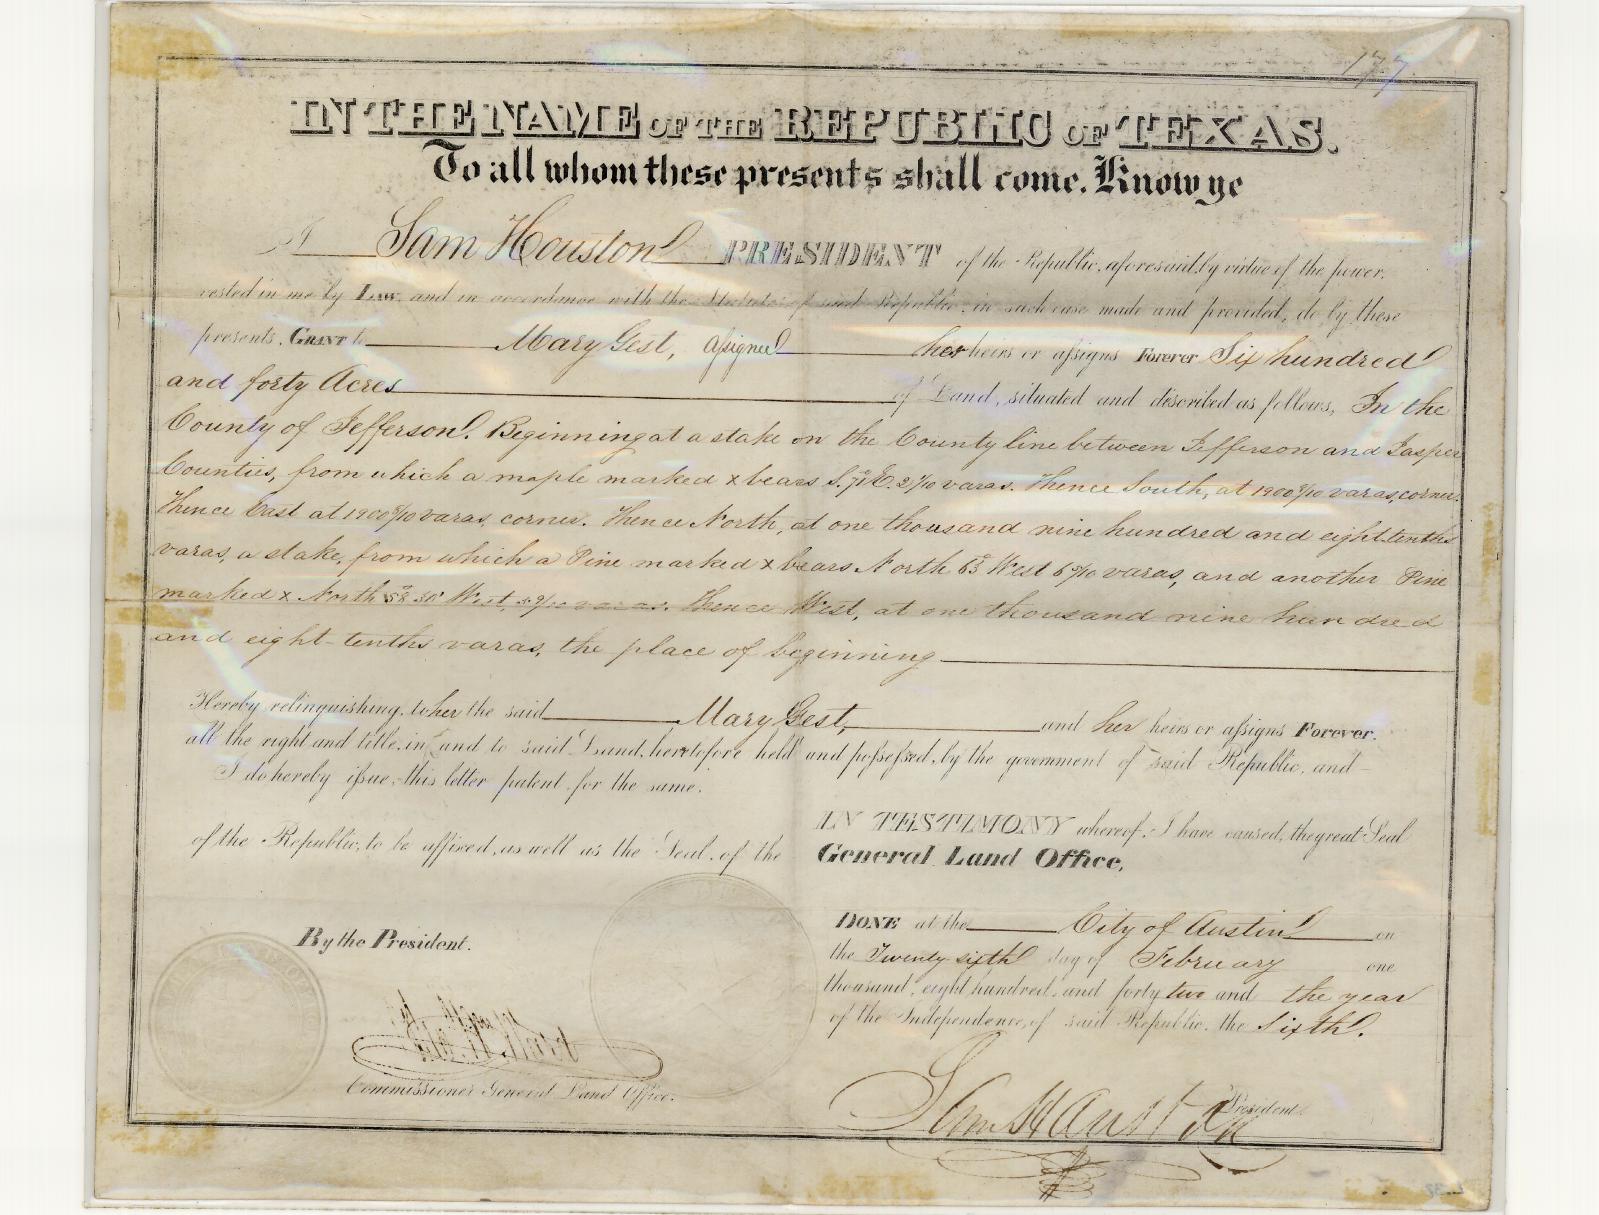 177
IN THE NAME OF THE REPUBLIC OF TEXAS.
To all whom these presents shall come, Know ye
I Sam Houston PRESIDENT of the Republic, aforesaid, by virtue of the power,
vested in me by LAW, and in accordance with the Statutes of said Republic, in such case made and provided, do by these
presents, GRANT to Mary Gest, Assignee her heirs or assigns Forever Six hundred
and forty Acres of Land, situated and described as follows, In the
County of Jefferson. Beginning at a stake on the County line between Jefferson and Jasper
Counties, from which a maple marked x bears S. 71° E. 2 1/10 varas. Thence South, at 1900 8/10 varas, corner.
Thence East at 1900 8/10 varas, corner. Thence North, at one thousand nine hundred and eight-tenths
varas, a stake, from which a Pine marked x bears North 63° West varas, and another Pine
marked x North West, varas. Thence West, at one thousand nine hundred
and eight-tenths varas, the place of beginning
Hereby relinquishing, to her the said Mary Gest, and her heirs or assigns Forever.
all the right and title, in and to said Land, heretofore held and possessed, by the government of said Republic, and
I do hereby issue, this letter patent for the same.
IN TESTIMONY whereof, I have caused, the great Seal
of the Republic, to be affixed, as well as the Seal, of the General Land Office,
DONE at the City of Austin on
the Twenty sixth day of February one
thousand, eight hundred, and forty two and the year
of the Independence, of said Republic, the Sixth.
By the President.
Commissioner General Land Office.
Sam Houston
President